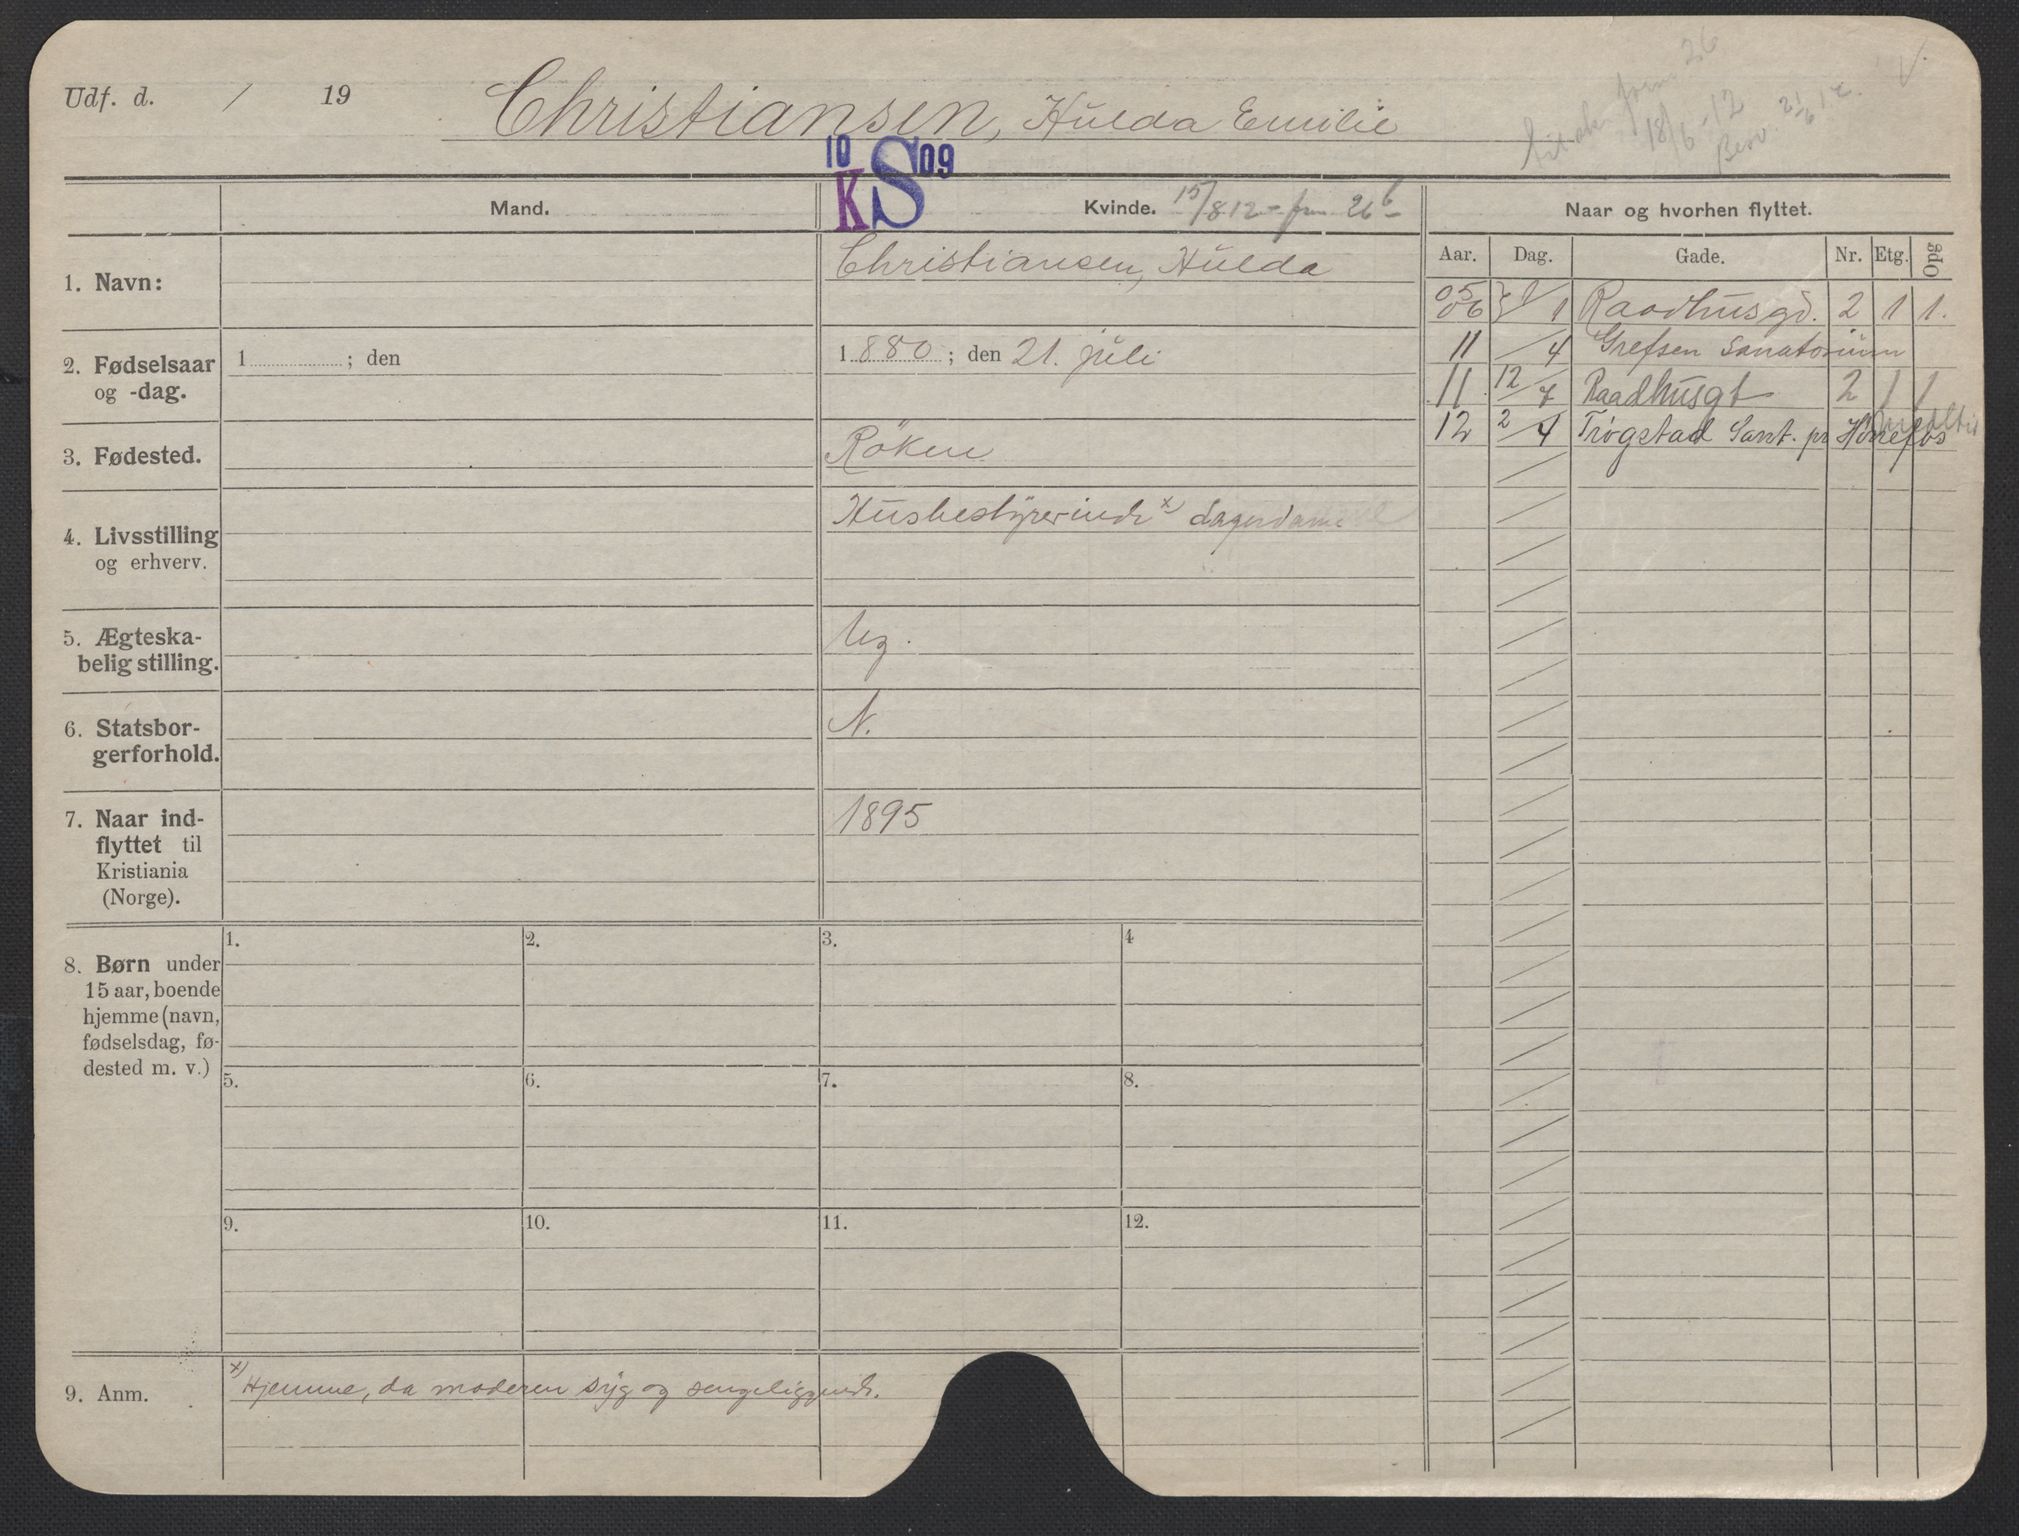 Udf. d. / 19
Christiansen, Hulda Emilie
18/6-12
26
Besv. 21/6 12. V.
10 KS 09
Mand.
Kvinde. 15/8 12 - 26
Naar og hvorhen flyttet.
Aar. Dag. Gade. Nr. Etg. Opg
1. Navn:
Christiansen, Hulda
05
06 1/1 Raadhusgd. 2 1 1.
11 /4 Grefsen Sanatorium
11 12/7 Raadhusgt 2 1 1
12 2/4 Trøgstad Sant. pr Hønefos
2. Fødselsaar
og -dag.
1 ; den
1880; den 21. juli
3. Fødested.
Röken
4. Livsstilling
og erhverv.
Husbestyrerinde x) Lagerdame
5. Ægteska-
belig stilling.
Ug.
6. Statsbor-
gerforhold.
N.
7. Naar ind-
flyttet til
Kristiania
(Norge).
1895
8. Børn under
15 aar, boende
hjemme (navn,
fødselsdag, fø-
dested m. v.)
1. 2. 3. 4
5. 6. 7. 8.
9. 10. 11. 12.
9. Anm.
x) Hjemme, da moderen syg og sengeliggende.